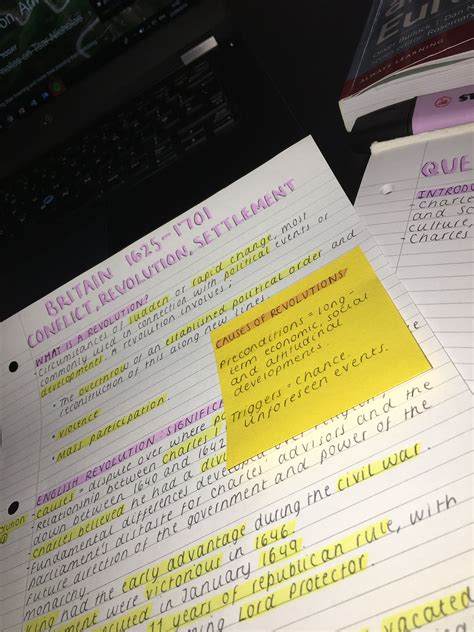 BRITAIN 1625-1701
CONFLICT, REVOLUTION, SETTLEMENT
WHAT IS A REVOLUTION?
• Circumstances of sudden or rapid change, most
commonly used in connection with political events or
developments. A revolution involves:
• The overthrow of an established political order and
reconstruction of this along new lines.
• violence
• Mass participation.
CAUSES OF REVOLUTIONS
Preconditions = long-
term economic, social
and attitudinal
developments.
Triggers = chance,
unforeseen events.
ENGLISH REVOLUTION: SIGNIFIC
- Causes = dispute over where po
- Relationship between Charles I
down between 1640 and 1642
- Charles believed he had a div
- Fundamental differences developed over religion,
parliament's distaste for Charles' advisors and the
future direction of the government and power of the
monarchy.
King had the early advantage during the civil war.
ment were victorious in 1646.
cuted in January 1649.
11 years of republican rule, with
ming Lord Protector.
vacated
QUE
INTROD
- Charle
and sc
culture,
- Charles
Euro
ALWAYS LEARNING